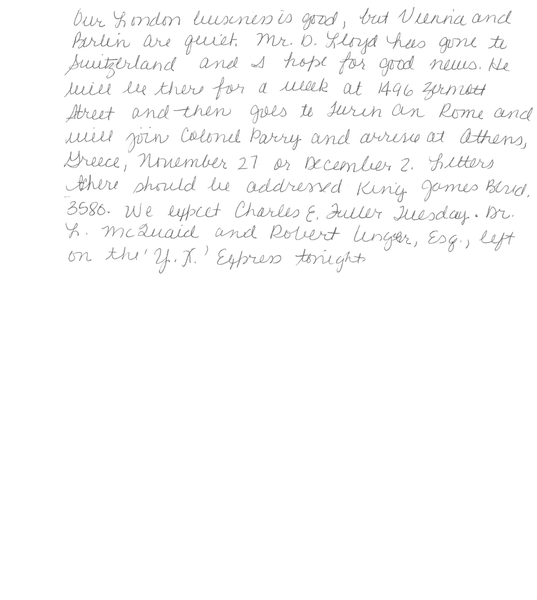 Our London business is good, but Vienna and
Berlin are quiet. Mr. D. Lloyd has gone to
Switzerland and I hope for good news. He
will be there for a week at 1496 Zermott
Street and then goes to Turin an Rome and
will join Colonel Parry and arrive at Athens,
Greece, November 27 or December 2. Letters
there should be addressed King James Blvd.
3580. We expect Charles E. Fuller Tuesday. Dr.
L. McQuaid and Robert Unger, Esq., left
on the 'Y.X.' Express tonight